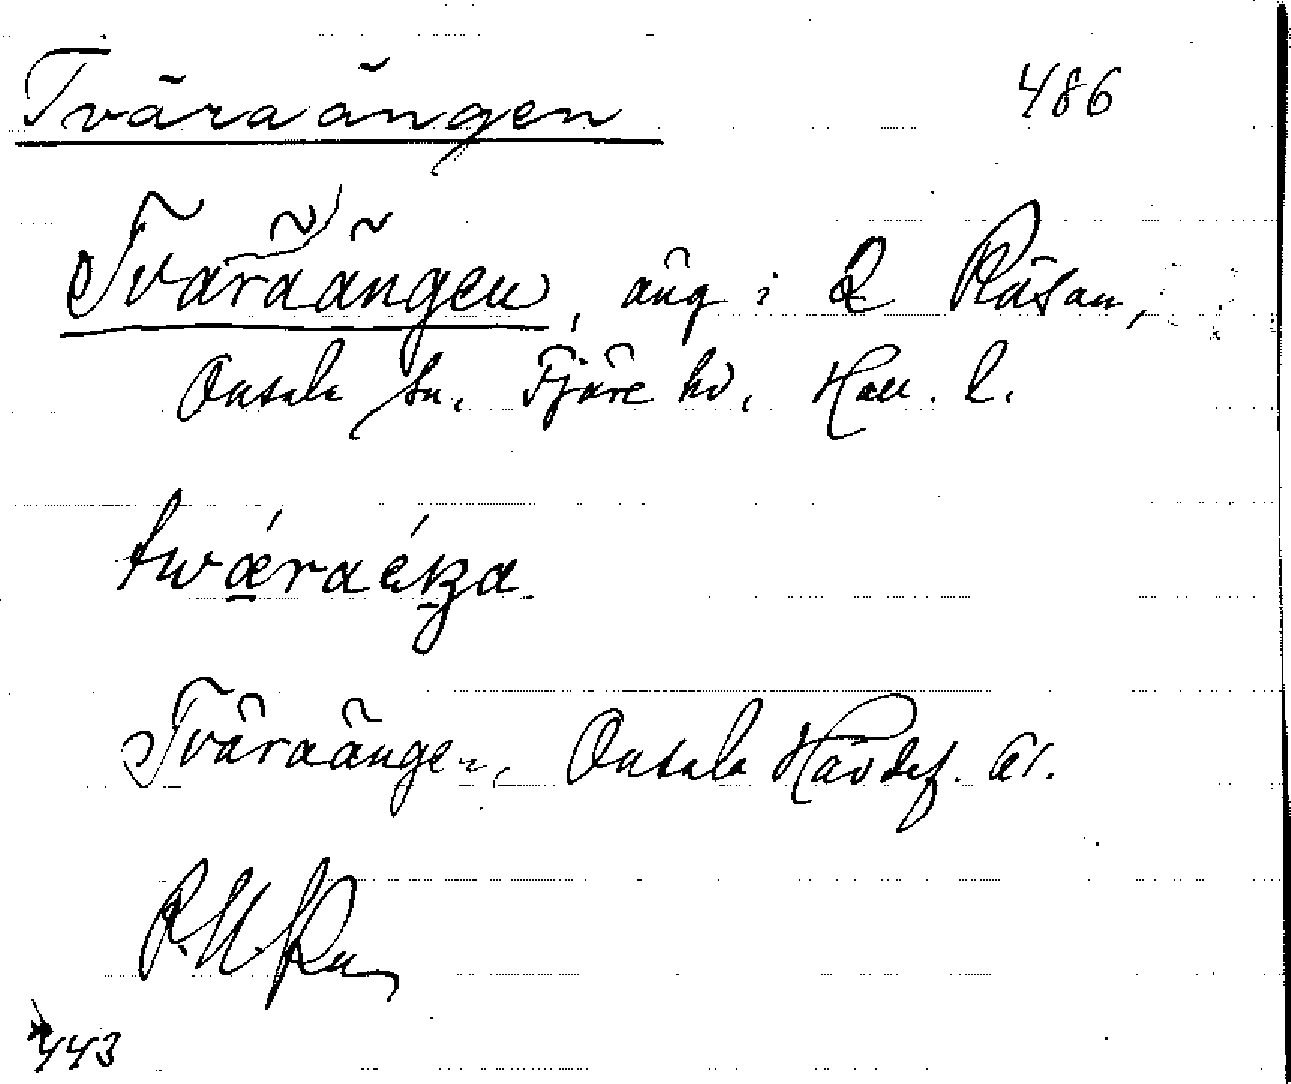 Tväraängen 486
Tväraängen, äng i 2 Råsan,
Onsala sn. Fjäre hd. Hall. l.
twǽraéŋa
Tväraängen, Onsala Hävdef. Ar.
443